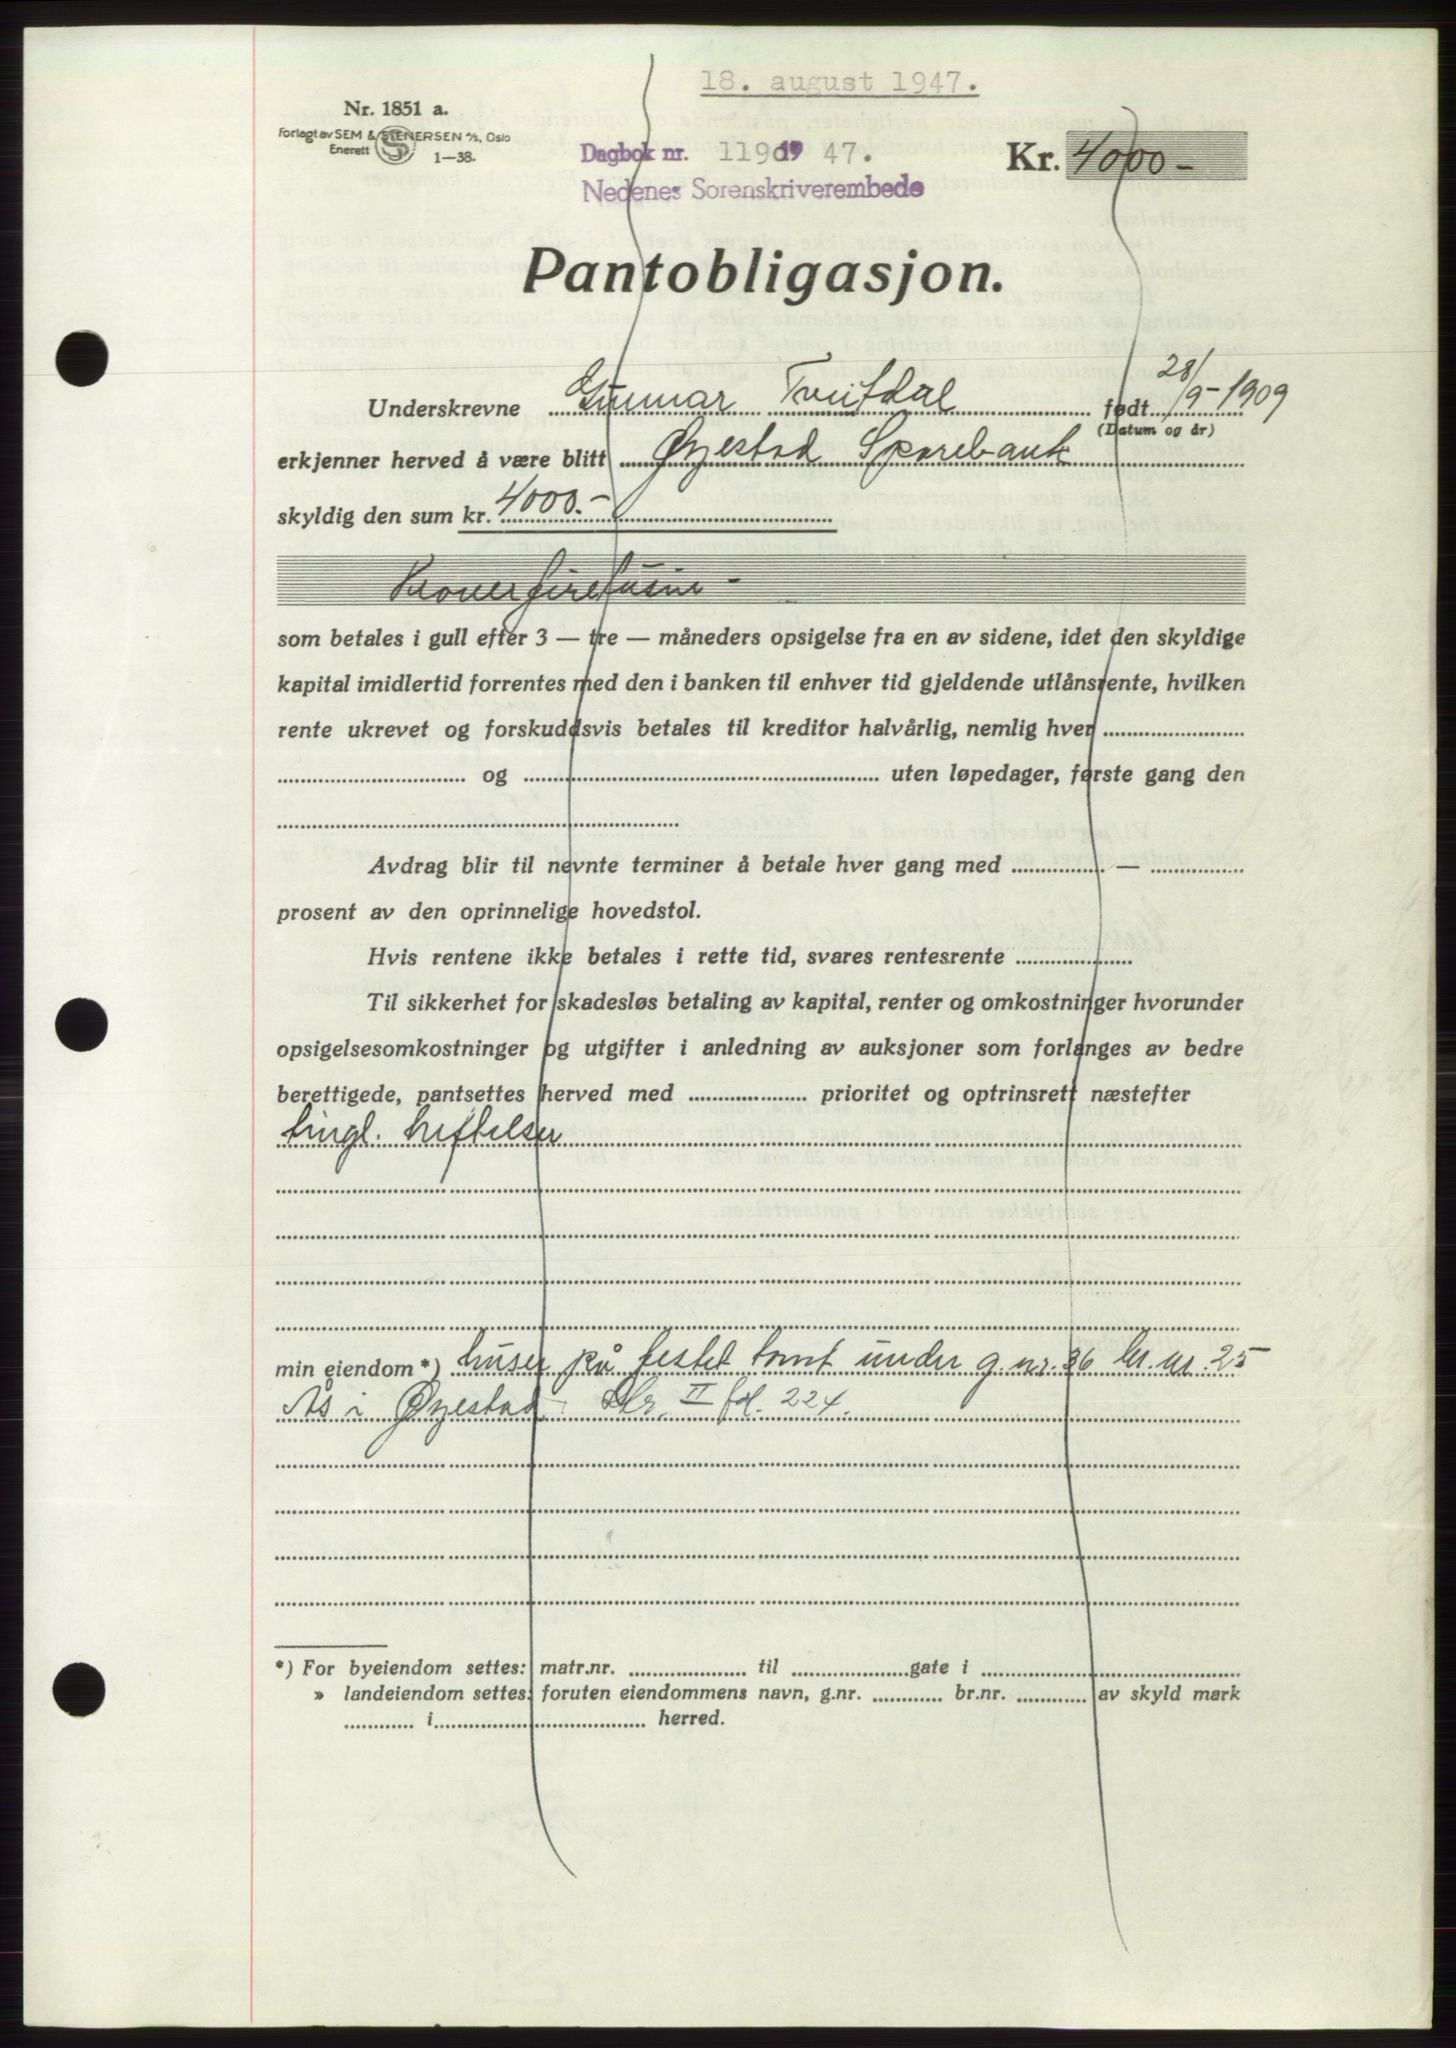 18. august 1947.
Nr. 1851 a.
Forlagt av SEM & STENERSEN A/S, Oslo
Enerett 1—38.
Dagbok nr. 1190 19 47.
Nedenes Sorenskriverembede
Kr. 4000 —
Pantobligasjon.
Underskrevne Gunnar Tveitdal født 28/9-1909
(Datum og år)
erkjenner herved å være blitt Øyestad Sparebank
skyldig den sum kr. 4000.-
Kroner firetusen —
som betales i gull efter 3 — tre — måneders opsigelse fra en av sidene, idet den skyldige
kapital imidlertid forrentes med den i banken til enhver tid gjeldende utlånsrente, hvilken
rente ukrevet og forskuddsvis betales til kreditor halvårlig, nemlig hver
og uten løpedager, første gang den
Avdrag blir til nevnte terminer å betale hver gang med —
prosent av den oprinnelige hovedstol.
Hvis rentene ikke betales i rette tid, svares rentesrente
Til sikkerhet for skadesløs betaling av kapital, renter og omkostninger hvorunder
opsigelsesomkostninger og utgifter i anledning av auksjoner som forlanges av bedre
berettigede, pantsettes herved med prioritet og optrinsrett næstefter
tingl. heftelser
min eiendom *) huser på festet tomt under g.nr. 36 br.nr. 25
Ås i Øyestad II fol. 224.
*) For byeiendom settes: matr.nr. til gate i
» landeiendom settes: foruten eiendommens navn, g.nr. br.nr. av skyld mark
i herred.